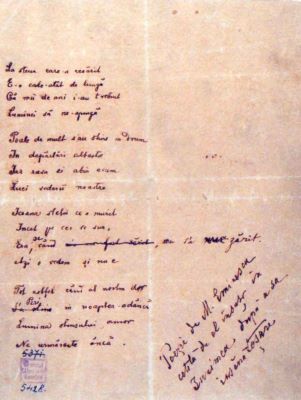 La steaua care-a răsărit
E-o cale-atât de lungă
Că mii de ani i-au trebuit
Luminei să ne-ajungă
Poate de mult s'au stins în drum
In depărtări albastre
Iar raza ei abia acum
Luci vederii noastre
Icoana stelei ce-a murit
Incet pe cer se suie,
Era, când nu s'a zărit
Azi o vedem și nu e
Tot astfel când al nostru dor
Peri în noapte-adâncă
Lumina stinsului amor
Ne urmărește încă.
5371.
5428.
Poezie de M. Eminescu
de el însuși în
După a sa